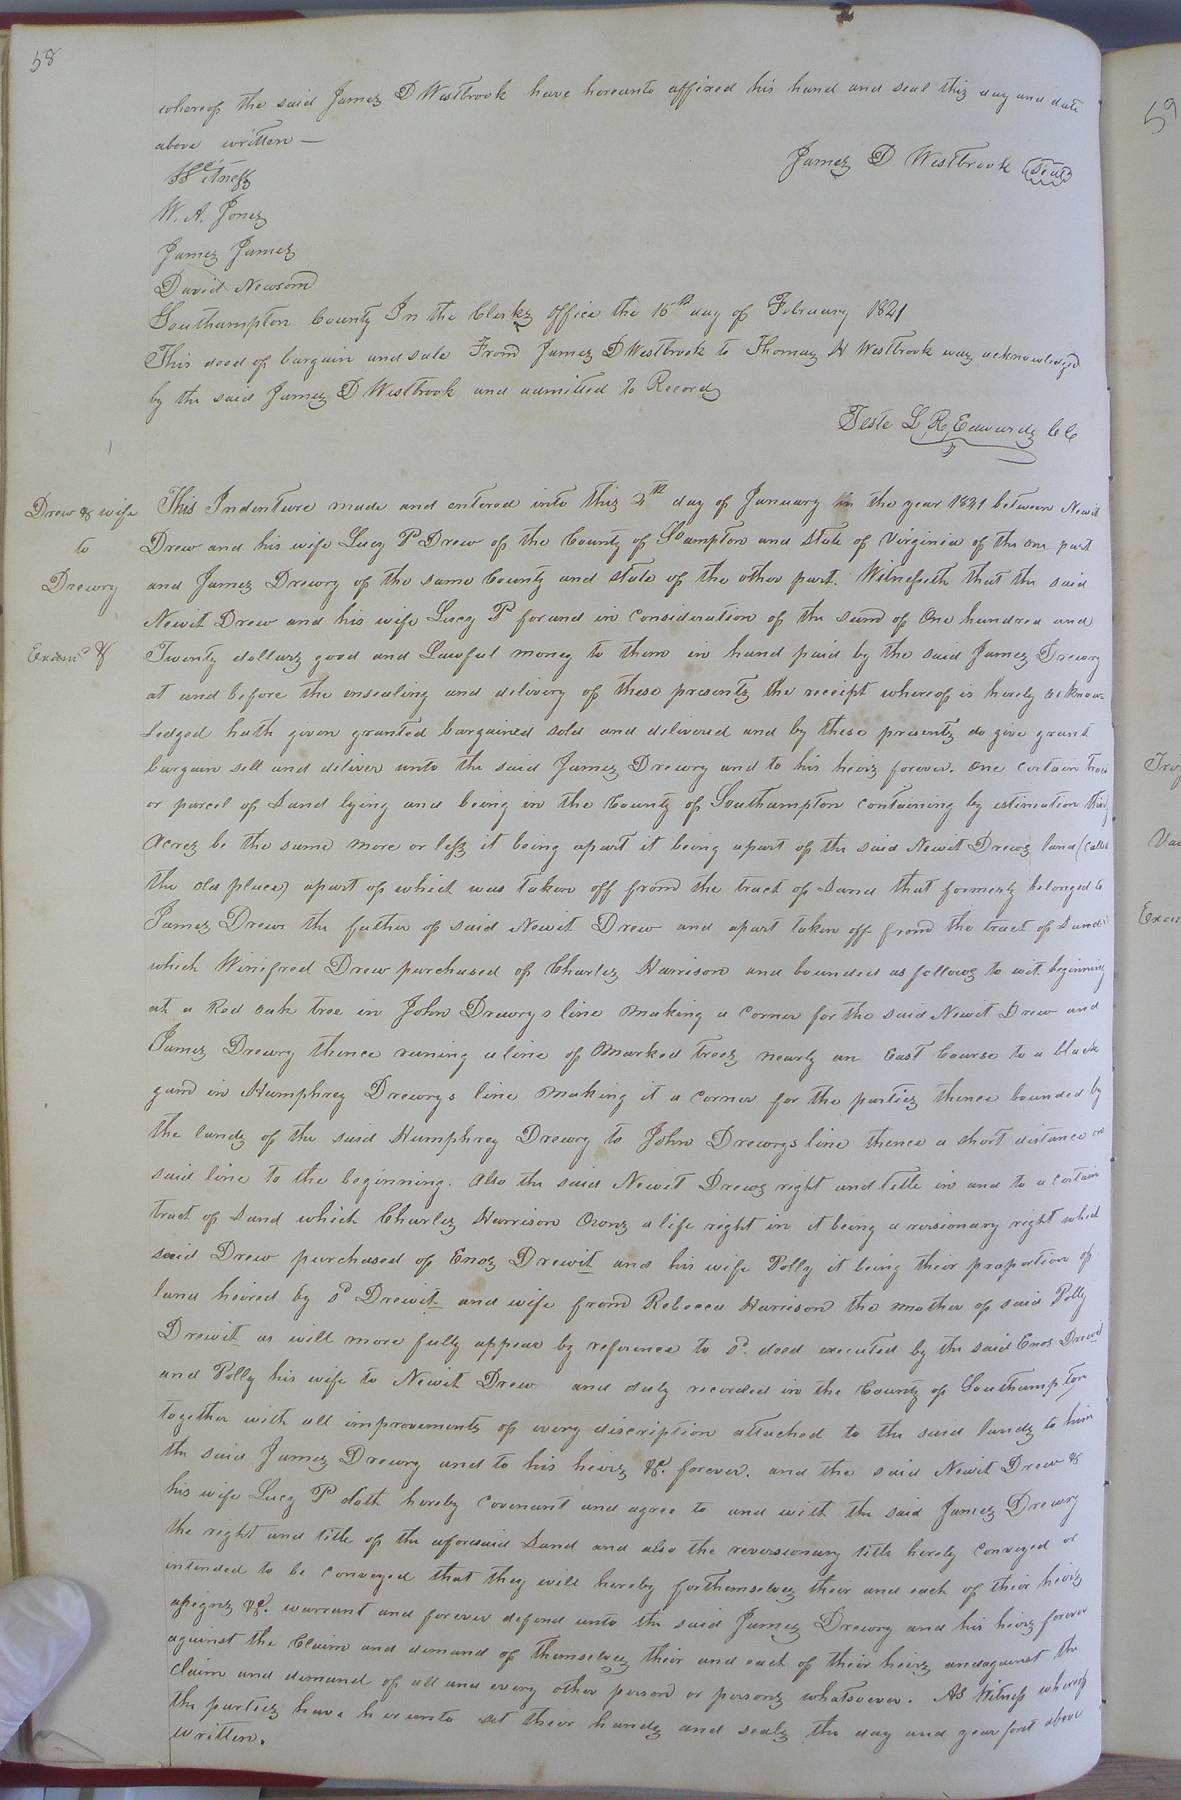 58
whereof the said James D Westbrook have hereunto affixed his hand and seal this day and date
above written —
James D Westbrook (Seal)
Witness
W. A. Jones
James James
David Newsom
Southampton County In the Clerks Office the 15th day of February 1821
This deed of bargain and sale From James D Westbrook to Thomas H Westbrook was acknowledged
by the said James D Westbrook and admitted to Record
Teste L, R, Edwards CC
Drew & wife
to
Drewry
Examd &
This Indenture made and entered into this 2th day of January in the year 1821 between Newit
Drew and his wife Lucy P Drew of the County of SoHampton and State of Virginia of the one part
and James Drewry of the same County and State of the other part. Witnesseth that the said
Newit Drew and his wife Lucy P for and in Consideration of the sum of One hundred and
Twenty dollars good and Lawful money to them in hand paid by the said James Drewry
at and before the ensealing and delivery of these presents the receipt whereof is hereby acknow-
ledged hath given granted bargained sold and delivered and by these presents do give grant
bargain sell and deliver unto the said James Drewry and to his heirs forever. one certain tract
or parcel of Land lying and being in the County of Southampton containing by estimation thirty
Acres be the same more or less it being apart it being apart of the said Newit Drews land (called
the old place) apart of which was taken off from the tract of Land that formerly belonged to
James Drew the father of said Newit Drew and apart taken off from the tract of Land
which Winifred Drew purchased of Charles Harrison and bounded as follows to wit. beginning
at a Red oak tree in John Drewrys line making a corner for the said Newit Drew and
James Drewry thence runing a line of marked trees nearly an East Course to a black
gum in Humphrey Drewrys line making it a corner for the parties thence bounded by
the lands of the said Humphrey Drewry to John Drewrys line thence a short distance on
said line to the beginning. Also the said Newit Drews right and title in and to a certain
tract of Land which Charles Harrison Owns a life right in it being a revsionary right which
said Drew purchased of Enos Drewit and his wife Polly it being their proportion of
land heired by sd Drewit and wife from Rebecca Harrison the mother of said Polly
Drewit as will more fully appear by reference to sd. deed executed by the said Enos Drewit
and Polly his wife to Newit Drew and duly recorded in the County of Southampton
together with all improvements of every discription attached to the said lands to him
the said James Drewry and to his heirs &c. forever. and the said Newit Drew &
his wife Lucy P doth hereby Covenant and agree to and with the said James Drewry
the right and title of the aforesaid Land and also the reversionary title hereby Conveyed or
intended to be conveyed that they will hereby forthemselves their and each of their heirs
assigns &c. warrant and forever defend unto the said James Drewry and his heirs forever
against the Claim and demand of themselves their and each of their heirs andagainst the
Claim and demand of all and every other person or persons whatsoever. As Witness whereof
the parties have hereunto set their hands and seals the day and year first above
written.
59